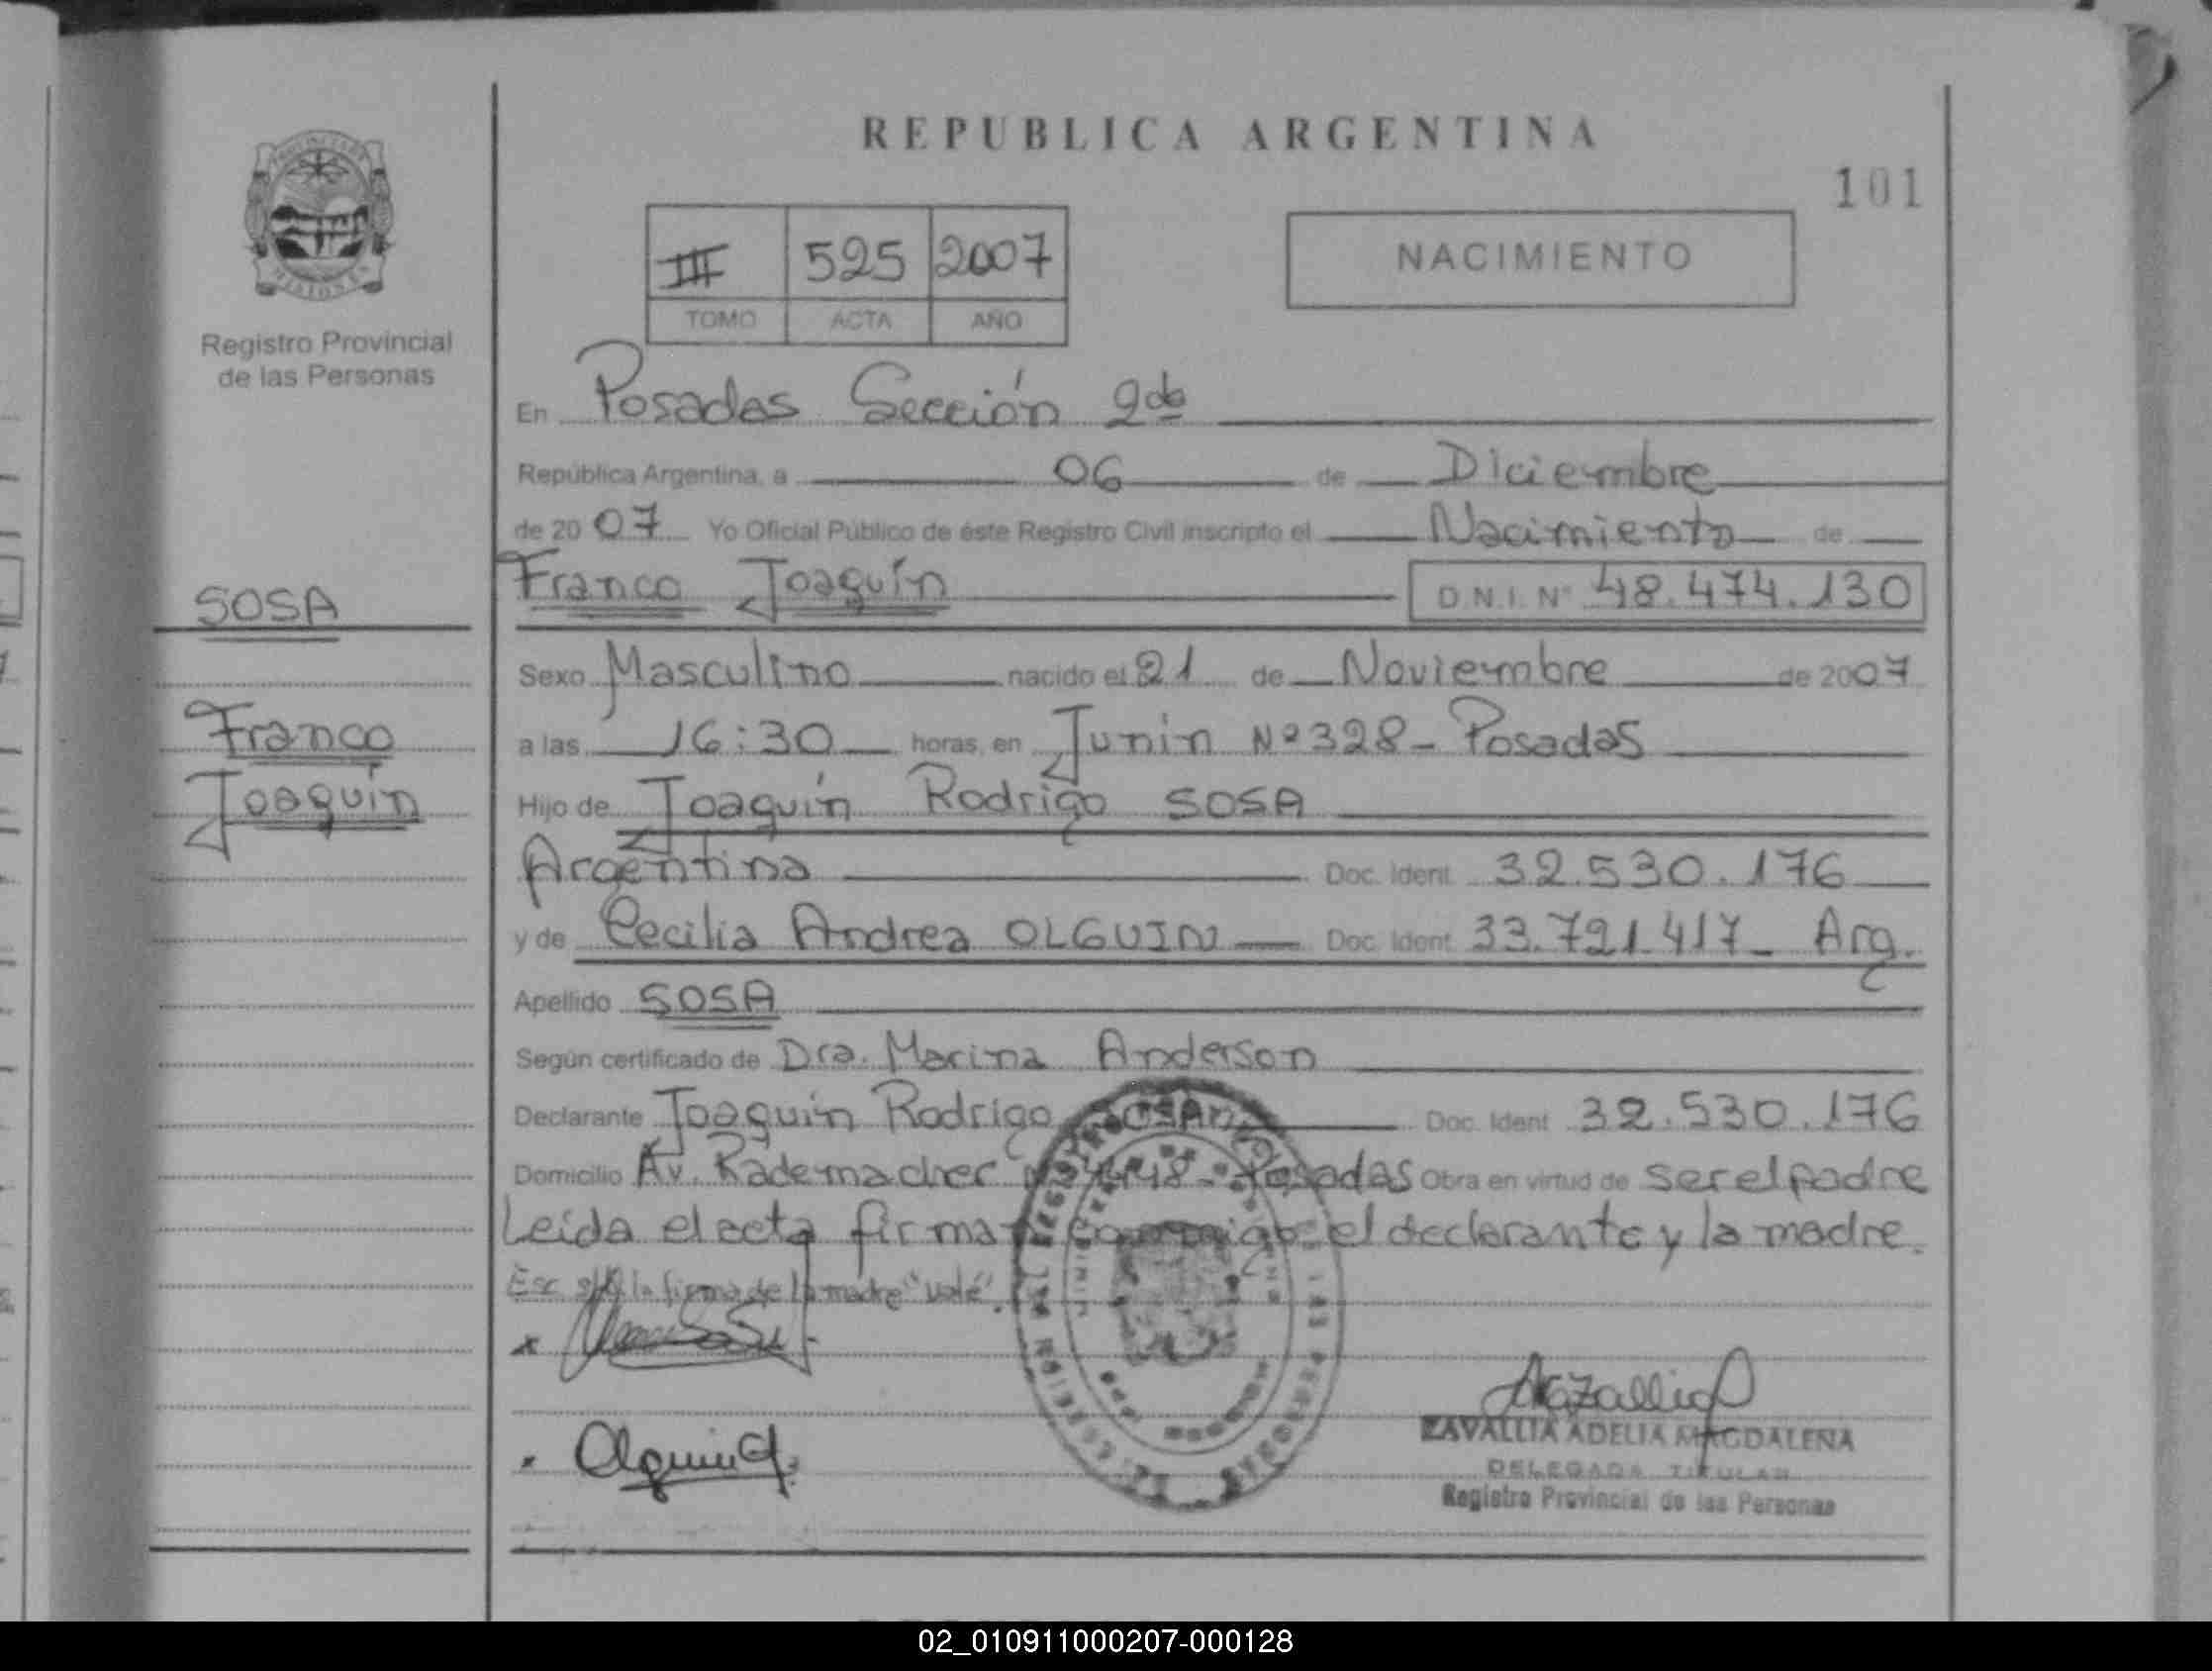 REPUBLICA ARGENTINA
101
III 525 2007
TOMO ACTA AÑO
NACIMIENTO
Registro Provincial
de las Personas
En Posadas Sección 2da
República Argentina, a 06 de Diciembre
de 2007 Yo Oficial Público de éste Registro Civil inscripto el Nacimiento de
Franco Joaquín D.N.I. Nº 48.474.130
SOSA
Franco
Joaquín
Sexo Masculino nacido el 21 de Noviembre de 2007
a las 16:30 horas, en Junin Nº 328 - Posadas
Hijo de Joaquín Rodrigo SOSA
Argentina Doc. Ident. 32.530.176
y de Cecilia Andrea OLGUIN Doc. Ident. 33.721.417 - Arg.
Apellido SOSA
Según certificado de Dra. Marina Anderson
Declarante Joaquín Rodrigo SOSA Doc. Ident. 32.530.176
Domicilio Av. Rademacher Posadas Obra en virtud de ser el padre
Leída el acta firman conmigo el declarante y la madre.
la firma de la madre "vale".
Olguin
ZAVALLIA ADELIA MAGDALENA
DELEGADA TITULAR
Registro Provincial de las Personas
02_010911000207-000128